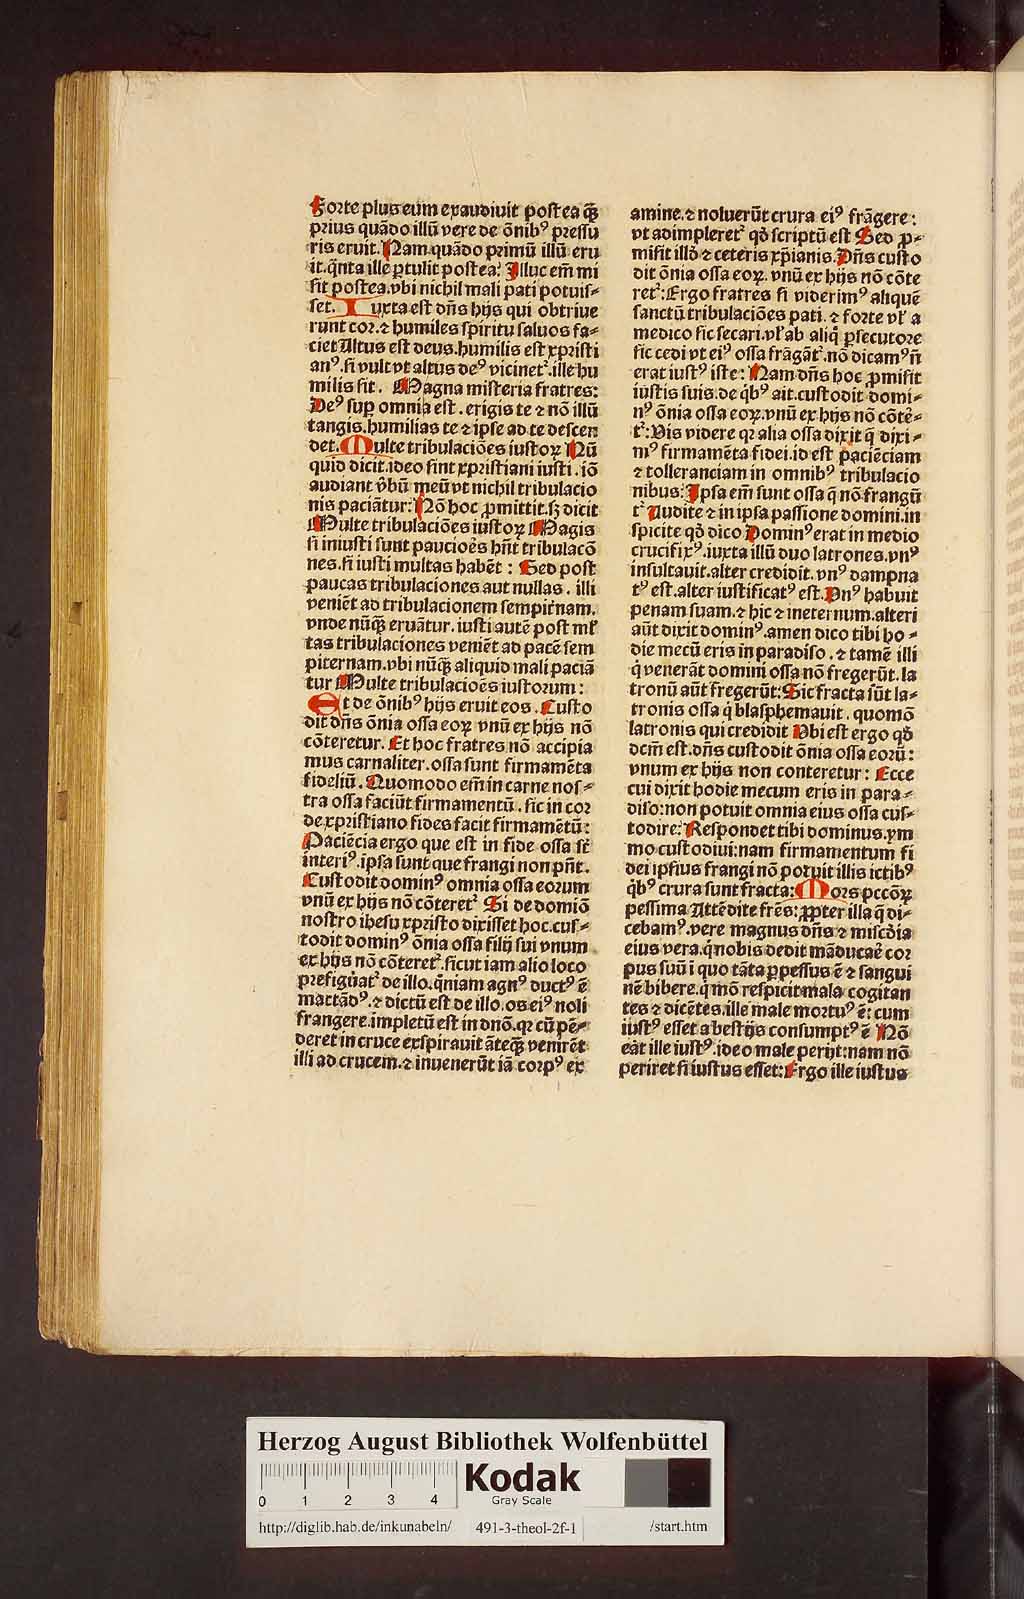 Forte plus eum exaudiuit postea ꝙ̃
prius quādo illū vere de ōnibꝰ pressu
ris eruit. Nam quādo primū illū eru
it. q̄nta ille ꝑtulit postea: Illuc em̄ mi
sit postea. vbi nichil mali pati potuis⸗
set. Iuxta est dn̄s hijs qui obtriue
runt cor. ⁊ humiles spiritu saluos fa⸗
ciet Altus est deus. humilis est xp̄risti
anꝰ. si vult vt altus deꝰ vicinetꝰ. ille hu
milis sit. Magna misteria fratres:
Deꝰ suꝑ omnia est. erigis te ⁊ nō illū
tangis. humilias te ⁊ ipse ad te descen
det. Multe tribulaciōes iustoꝝ Nū
quid dicit. ideo sint xpristiani iusti. iō
audiant v̄bū meū vt nichil tribulacio
nis paciātur: Nō hoc ꝓmittit. sꝫ dicit
Multe tribulaciōes iustoꝝ Magis
si iniusti sunt paucioēs hn̄t tribulacō
nes. si iusti multas habēt: Sed post
paucas tribulaciones aut nullas. illi
veniēt ad tribulacionem sempit̄nam.
vnde nūꝙ̃ eruātur. iusti autē post ml̄
tas tribulaciones veniēt ad pacē sem
piternam. vbi nūꝙ̃ aliquid mali paciā
tur Multe tribulacioēs iustorum:
Et de ōnibꝰ hijs eruit eos. Custo
dit dn̄s ōnia ossa eoꝝ vnū ex hijs nō
cōteretur. Et hoc fratres nō accipia
mus carnaliter. ossa sunt firmamēta
fideliū. Quomodo em̄ in carne nos⸗
tra ossa faciūt firmamentū. sic in cor
de xpristiano fides facit firmamētū:
Paciēcia ergo que est in fide ossa st̄
interiꝰ. ipsa sunt que frangi non pn̄t.
Custodit dominꝰ omnia ossa eorum
vnū ex hijs nō cōteretꝰ Si de domiō
nostro ihesu xpristo dixisset hoc. cus⸗
todit dominꝰ ōnia ossa filij sui vnum
ex hijs nō cōteretꝰ. sicut iam alio loco
prefigūatꝰ de illo. q̄niam agnꝰ ductꝰ ē
mactādꝰ. ⁊ dictū est de illo. os eiꝰ noli
frangere. impletū est in dnō. qꝛ cū pē⸗
deret in cruce exspirauit āteꝙ̃ venirēt
illi ad crucem. ⁊ inuenerūt iā corpꝰ ex
amine. ⁊ noluerūt crura eiꝰ frāgere:
vt adimpleretꝰ qd̄ scriptū est Sed ꝓ⸗
misit illō ⁊ ceteris xp̄ianis. Dn̄s custo
dit ōnia ossa eoꝝ. vnū ex hijs nō cōte
retꝰ: Ergo fratres si viderimꝰ aliquē
sanctū tribulaciōes pati. ⁊ forte vl̄ a
medico sic secari. vl̄ ab aliq̄ ꝑsecutore
sic cedi vt eiꝰ ossa frāgātꝰ. nō dicamꝰ n̄
erat iustꝰ iste: Nam dn̄s hoc ꝓmisit
iustis suis. de q̄bꝰ ait. custodit domi⸗
nꝰ ōnia ossa eoꝝ. vnū ex hijs nō cōtē⸗
tꝰ: Vis videre qꝛ alia ossa dixit q̄ dixi⸗
mꝰ firmamēta fidei. id est paciēciam
⁊ tolleranciam in omnibꝰ tribulacio
nibus: Ipsa em̄ sunt ossa q̄ nō frangū
tꝰ Audite ⁊ in ipsa passione domini. in
spicite qd̄ dico Dominꝰ erat in medio
crucifixꝰ. iuxta illū duo latrones. vnꝰ
insultauit. alter credidit. vnꝰ dampna
tꝰ est. alter iustificatꝰ est. Vnꝰ habuit
penam suam. ⁊ hic ⁊ in eternum. alteri
aūt dixit dominꝰ. amen dico tibi ho⸗
die mecū eris in paradiso. ⁊ tamē illi
q̄ venerāt domini ossa nō fregerūt. la
tronū aūt fregerūt: Sic fracta sūt la⸗
tronis ossa q̄ blasphemauit. quomō
latronis qui credidit Vbi est ergo qd̄
dcm̄ est. dn̄s custodit ōnia ossa eorū:
vnum ex hijs non conteretur: Ecce
cui dixit hodie mecum eris in para⸗
diso: non potuit omnia eius ossa cus⸗
todire: Respondet tibi dominus. ym
mo custodiui: nam firmamentum fi
dei ipsius frangi nō potuit illis ictibꝰ
q̄bꝰ crura sunt fracta: Mors pccōꝝ
pessima Attēdite frēs: ꝓpter illa q̄ di⸗
cebamꝰ. vere magnus dn̄s ⁊ misc̄dia
eius vera. q̄ nobis dedit māducaē cor
pus suū i quo tāta ꝑpessus ē ⁊ sangui
nē bibere. q̄ mō respicit mala cogitan
tes ⁊ dicētes. ille male mortuꝰ ē: cum
iustꝰ esset a bestijs consumptꝰ ē Nō
eāt ille iustꝰ. ideo male perijt: nam nō
periret si iustus esset: Ergo ille iustus
Herzog August Bibliothek Wolfenbüttel
0 1 2 3 4
Kodak
Gray Scale
http://diglib.hab.de/inkunabeln/ 491-3-theol-2f-1 /start.htm